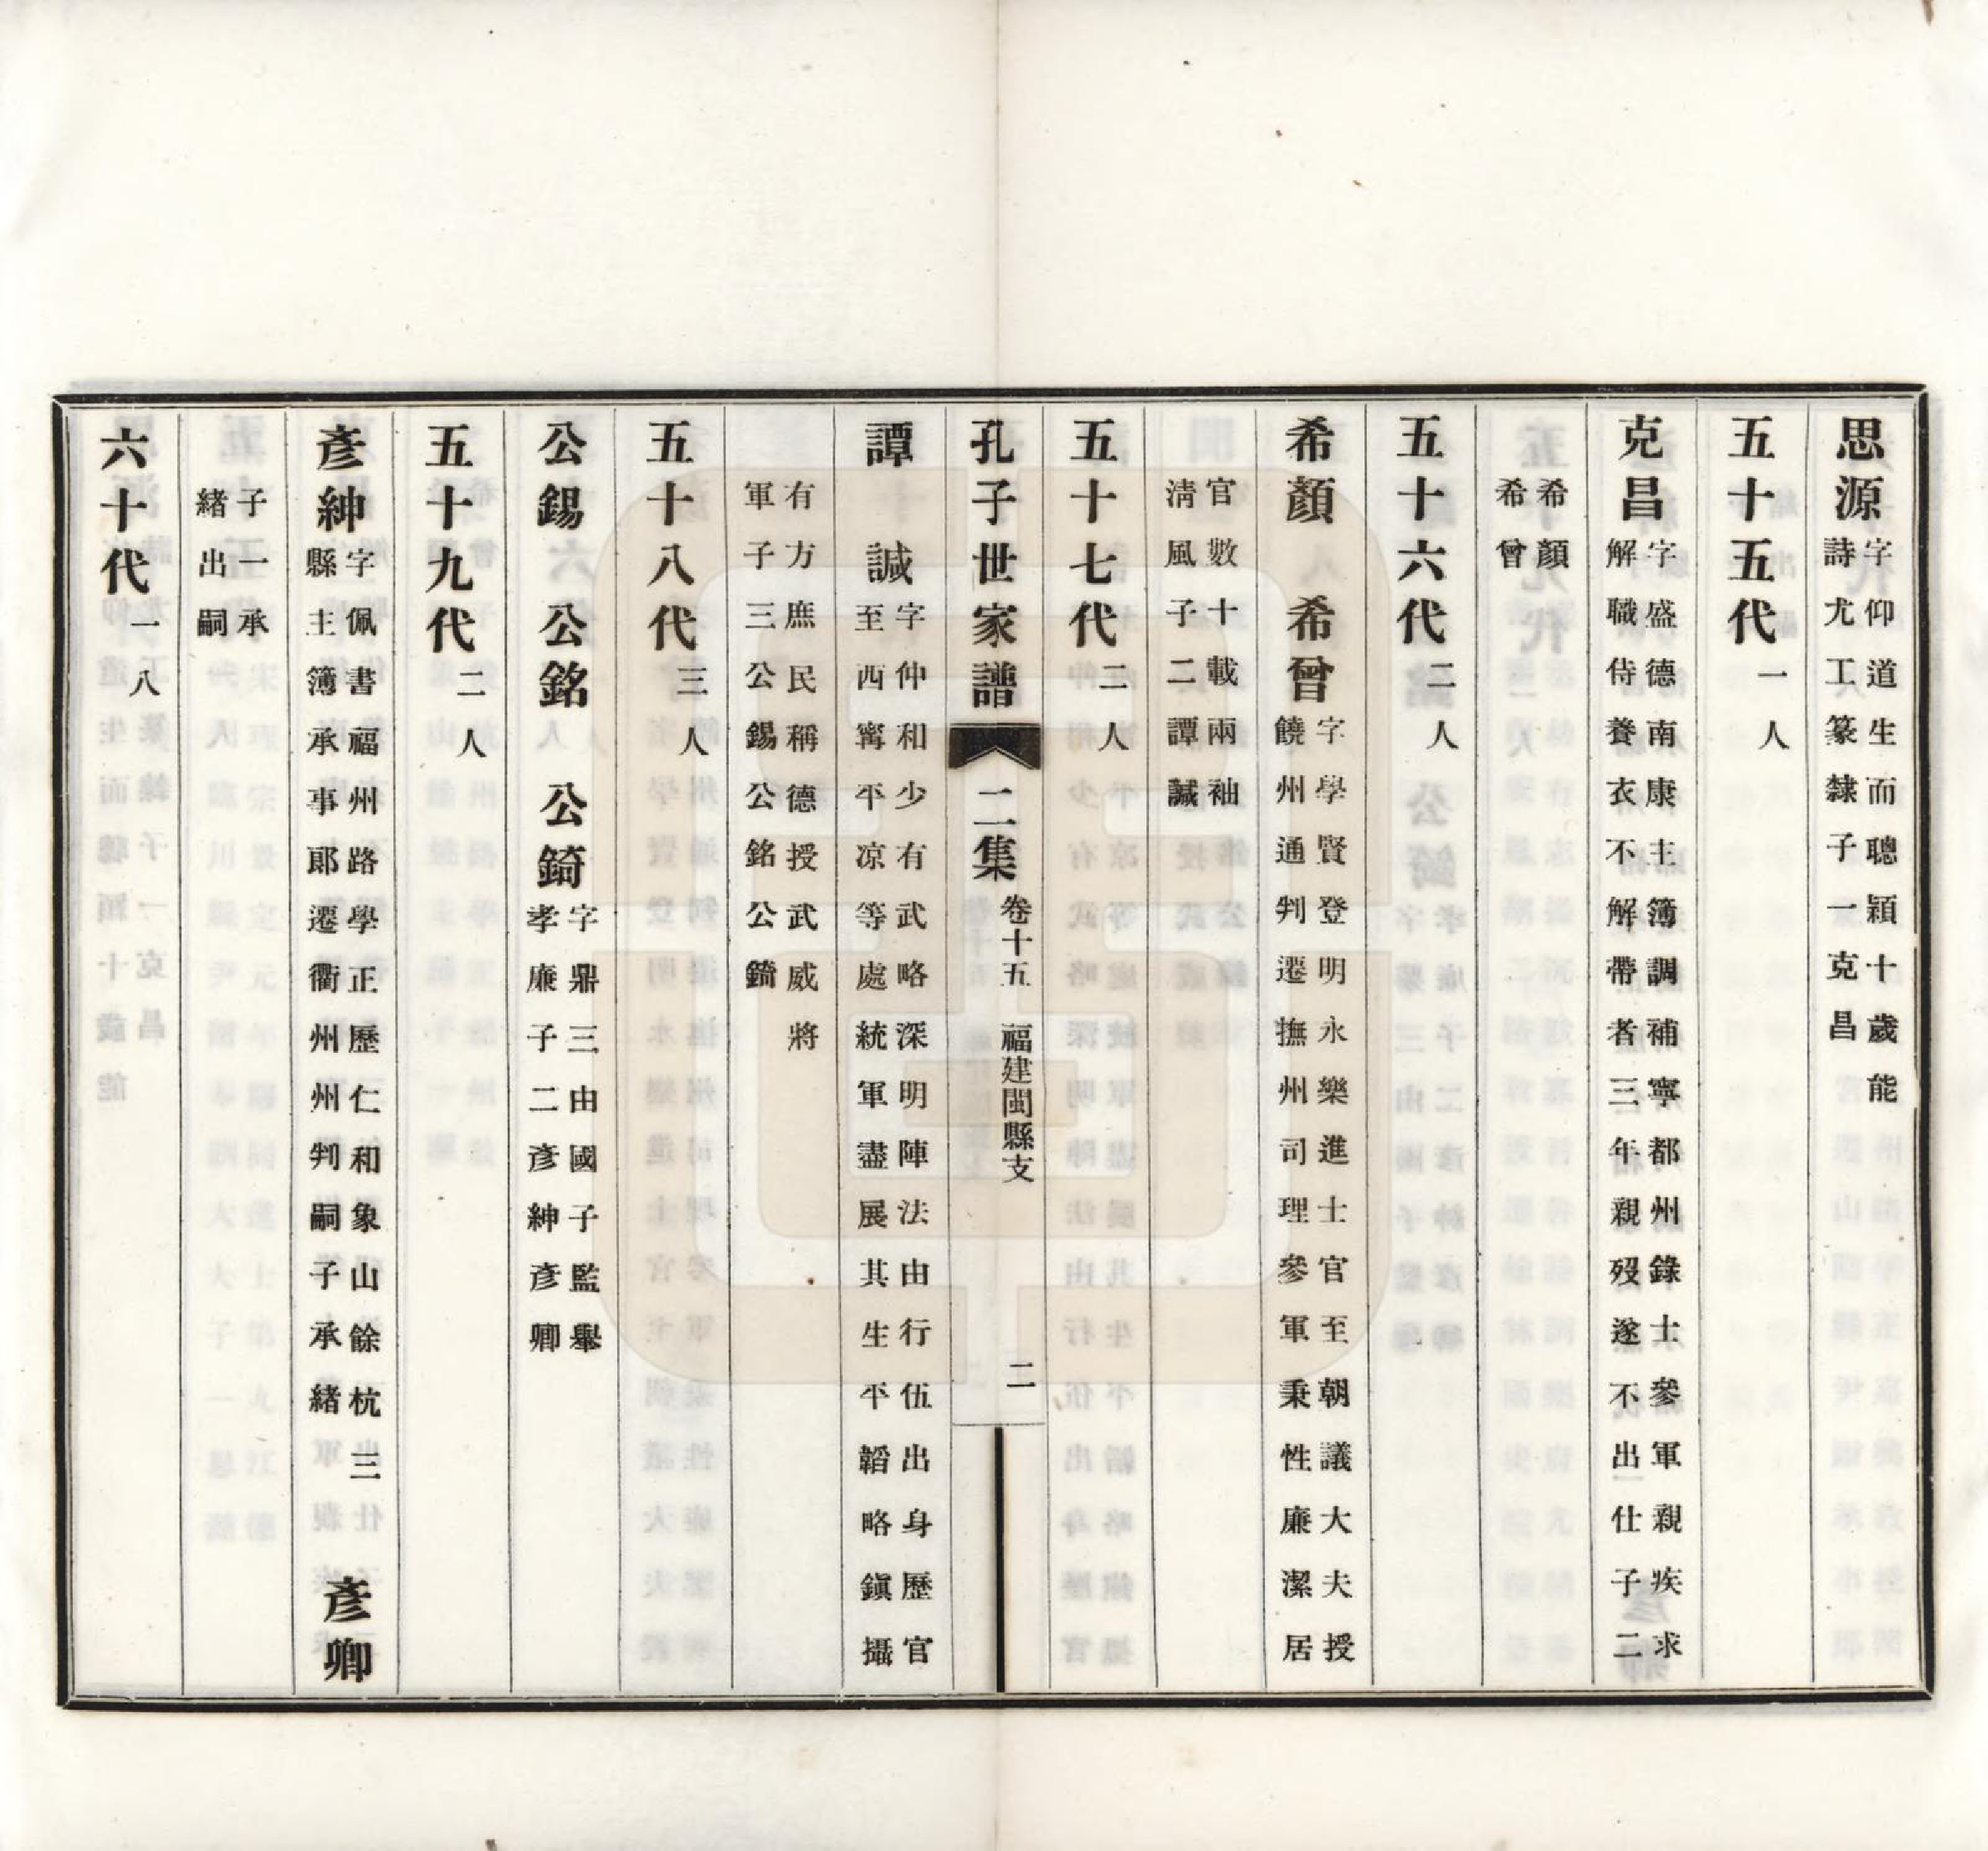 思源字仰道生而聰穎十歲能
詩尤工篆隸子一克昌
五十五代一人
克昌字盛德南康主簿調補寧都州錄士參軍親疾求
解職侍養衣不解帶者三年親歿遂不出仕子二
希顏
希曾
五十六代二人
希顏 希曾字學賢登明永樂進士官至朝議大夫授
饒州通判遷撫州司理參軍秉性廉潔居
官數十載兩袖
淸風子二譚誠
五十七代二人
孔子世家譜 二集 卷十五 福建閩縣支 二
譚 誠字仲和少有武略深明陣法由行伍出身歷官
至西寧平凉等處統軍盡展其生平韜略鎭攝
有方庶民稱德授武威將
軍子三公錫公銘公錡
五十八代三人
公錫 公銘 公錡字鼎三由國子監舉
孝廉子二彥紳彥卿
五十九代二人
彥紳字佩書福州路學正歷仁和象山餘杭三
縣主簿承事郞遷衢州州判嗣子承緒 彥卿
子一承
緒出嗣
六十代一人